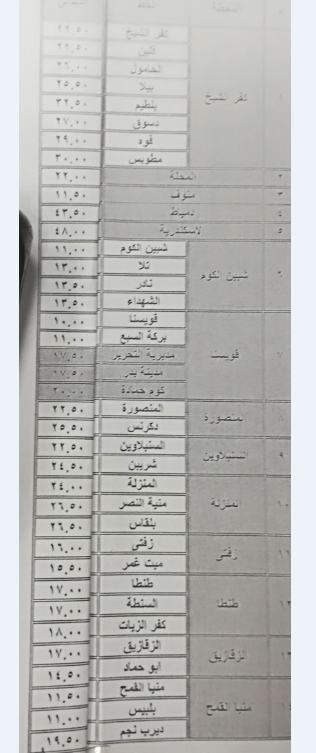 م المحطة الخط
١ كفر الشيخ كفر الشيخ ٢٢,٥٠
قلين ٢٢,٥٠
الحامول ٢٦,٠٠
بيلا ٢٥,٥٠
بلطيم ٣٢,٥٠
دسوق ٢٧,٠٠
فوه ٢٩,٠٠
مطوبس ٣٠,٠٠
٢ المحلة ٢٢,٠٠
٣ منوف ١١,٥٠
٤ دمياط ٤٣,٥٠
٥ الاسكندرية ٤٨,٠٠
٦ شبين الكوم شبين الكوم ١١,٠٠
تلا ١٣,٠٠
نادر ١٣,٥٠
الشهداء ١٣,٥٠
٧ قويسنا قويسنا ١٠,٠٠
بركة السبع ١١,٠٠
مديرية التحرير ١٧,٥٠
مدينة بدر ١٧,٥٠
كوم حمادة ٢٠,٠٠
٨ المنصورة المنصورة ٢٢,٥٠
دكرنس ٢٥,٥٠
٩ السنبلاوين السنبلاوين ٢٢,٥٠
شربين ٢٤,٥٠
١٠ المنزلة المنزلة ٢٤,٠٠
منية النصر ٢٦,٥٠
بلقاس ٢٦,٥٠
١١ زفتى زفتى ١٦,٠٠
ميت غمر ١٥,٥٠
١٢ طنطا طنطا ١٧,٠٠
السنطة ١٧,٠٠
كفر الزيات ١٨,٠٠
١٣ الزقازيق الزقازيق ١٧,٠٠
ابو حماد ١٤,٥٠
١٤ منيا القمح منيا القمح ١١,٥٠
بلبيس ١١,٠٠
ديرب نجم ١٩,٥٠